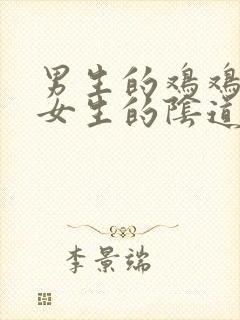 男生的鸡鸡
女生的陰道
李景端